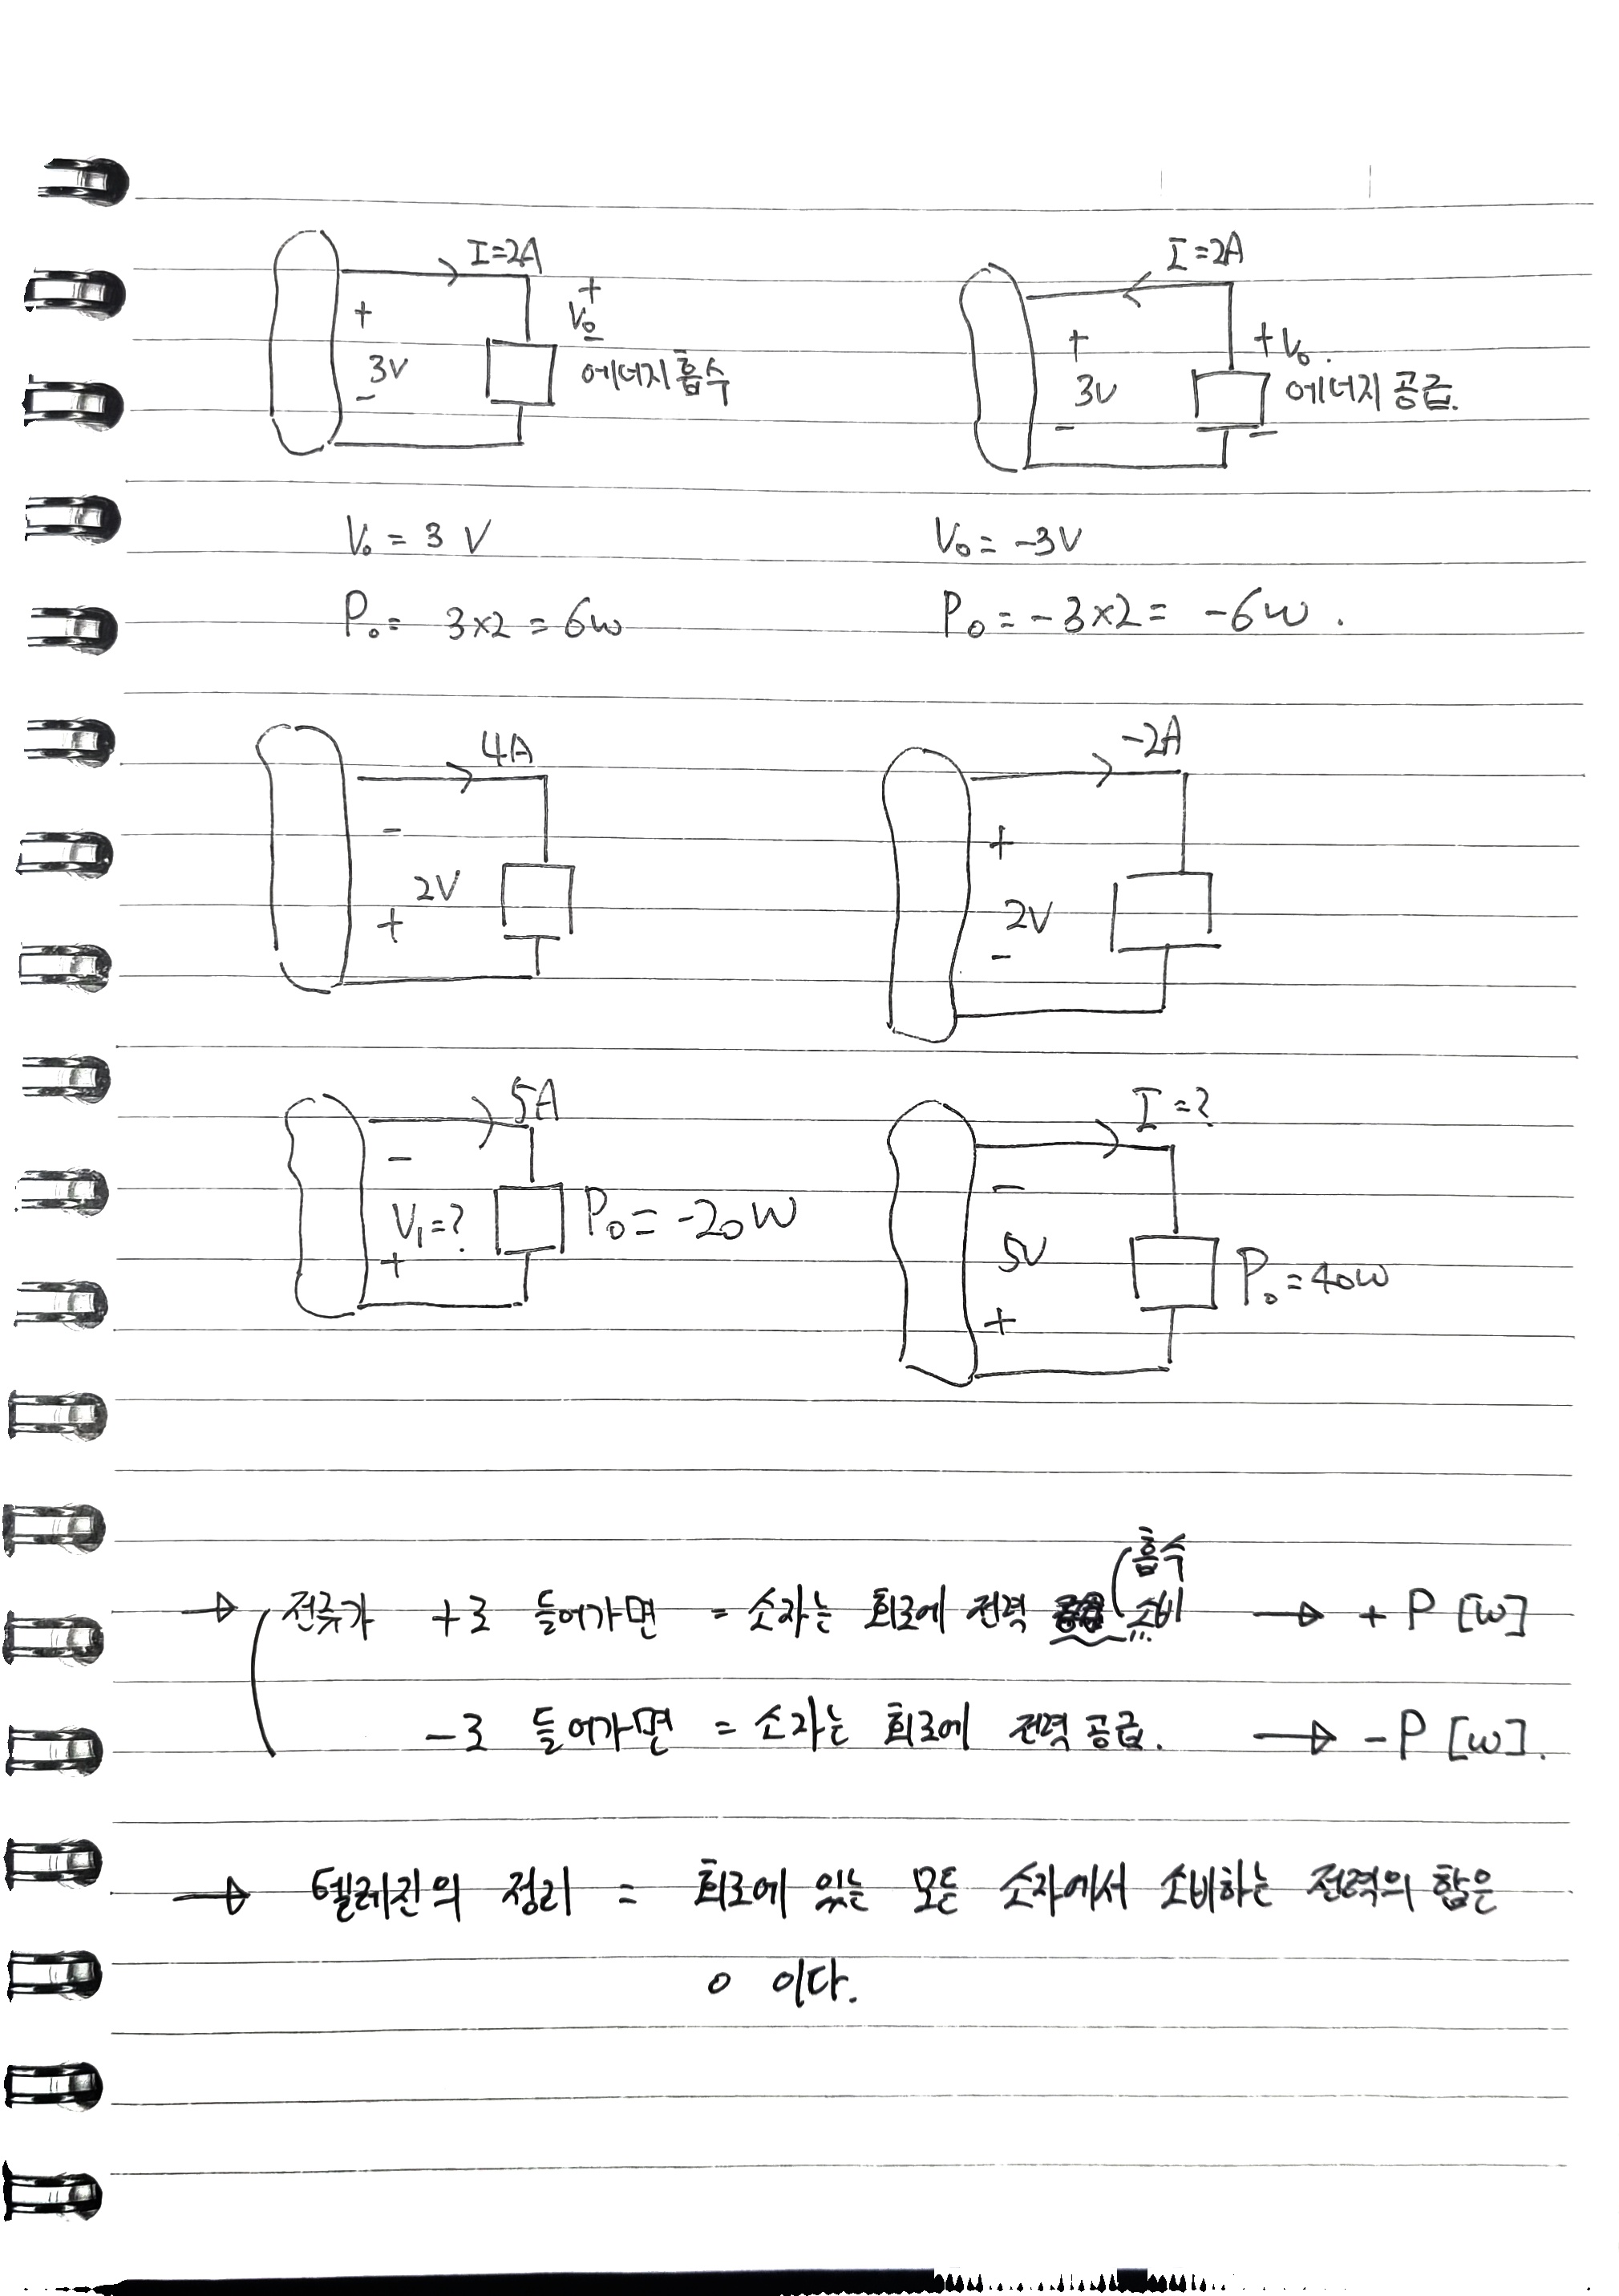 I=2A
+
3V
-
+
V₀
-
에너지 흡수
I=2A
+
3V
-
+ V₀.
-
에너지 공급.
V₀ = 3 V
V₀ = -3V
P₀ = 3×2 = 6W
P₀ = -3×2 = -6W.
4A
-
2V
+
-2A
+
2V
-
5A
-
V₁=?
+
P₀ = -20W
I=?
-
5V
+
P₀ = 40W
흡수
→ 전류가 +로 들어가면 = 소자는 회로에 전력 소비 → + P [W]
-로 들어가면 = 소자는 회로에 전력 공급. → - P [W].
→ 텔레진의 정리 = 회로에 있는 모든 소자에서 소비하는 전력의 합은
0 이다.